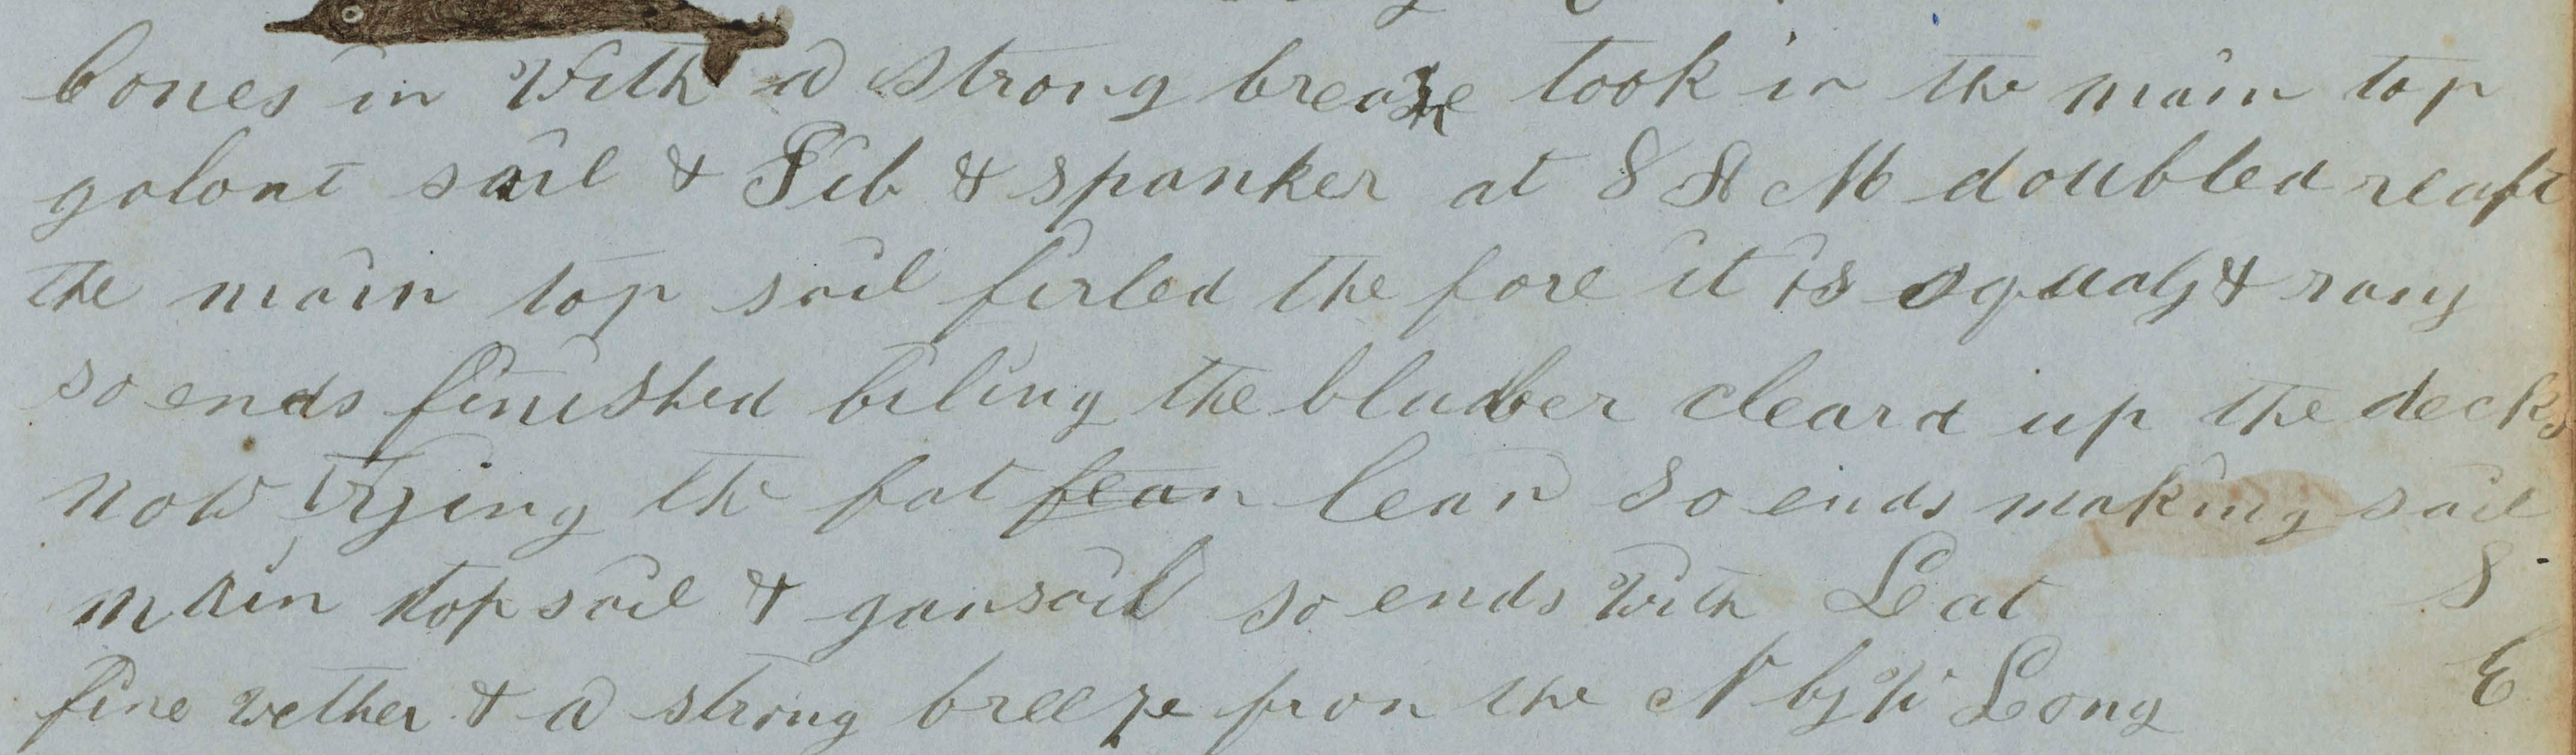 Comes in With a strong breaze took in the main top
galant sail & Jib & spanker at 8 A M doubled reaft
the main top sail firled the fore it is squaly & rany
so ends finished biling the blubber cleard up the decks
now trying the fat fean lean so ends making sail
main topsail & gansail so ends With Lat S
fine wether & a strong breeze fron the N by W Long E